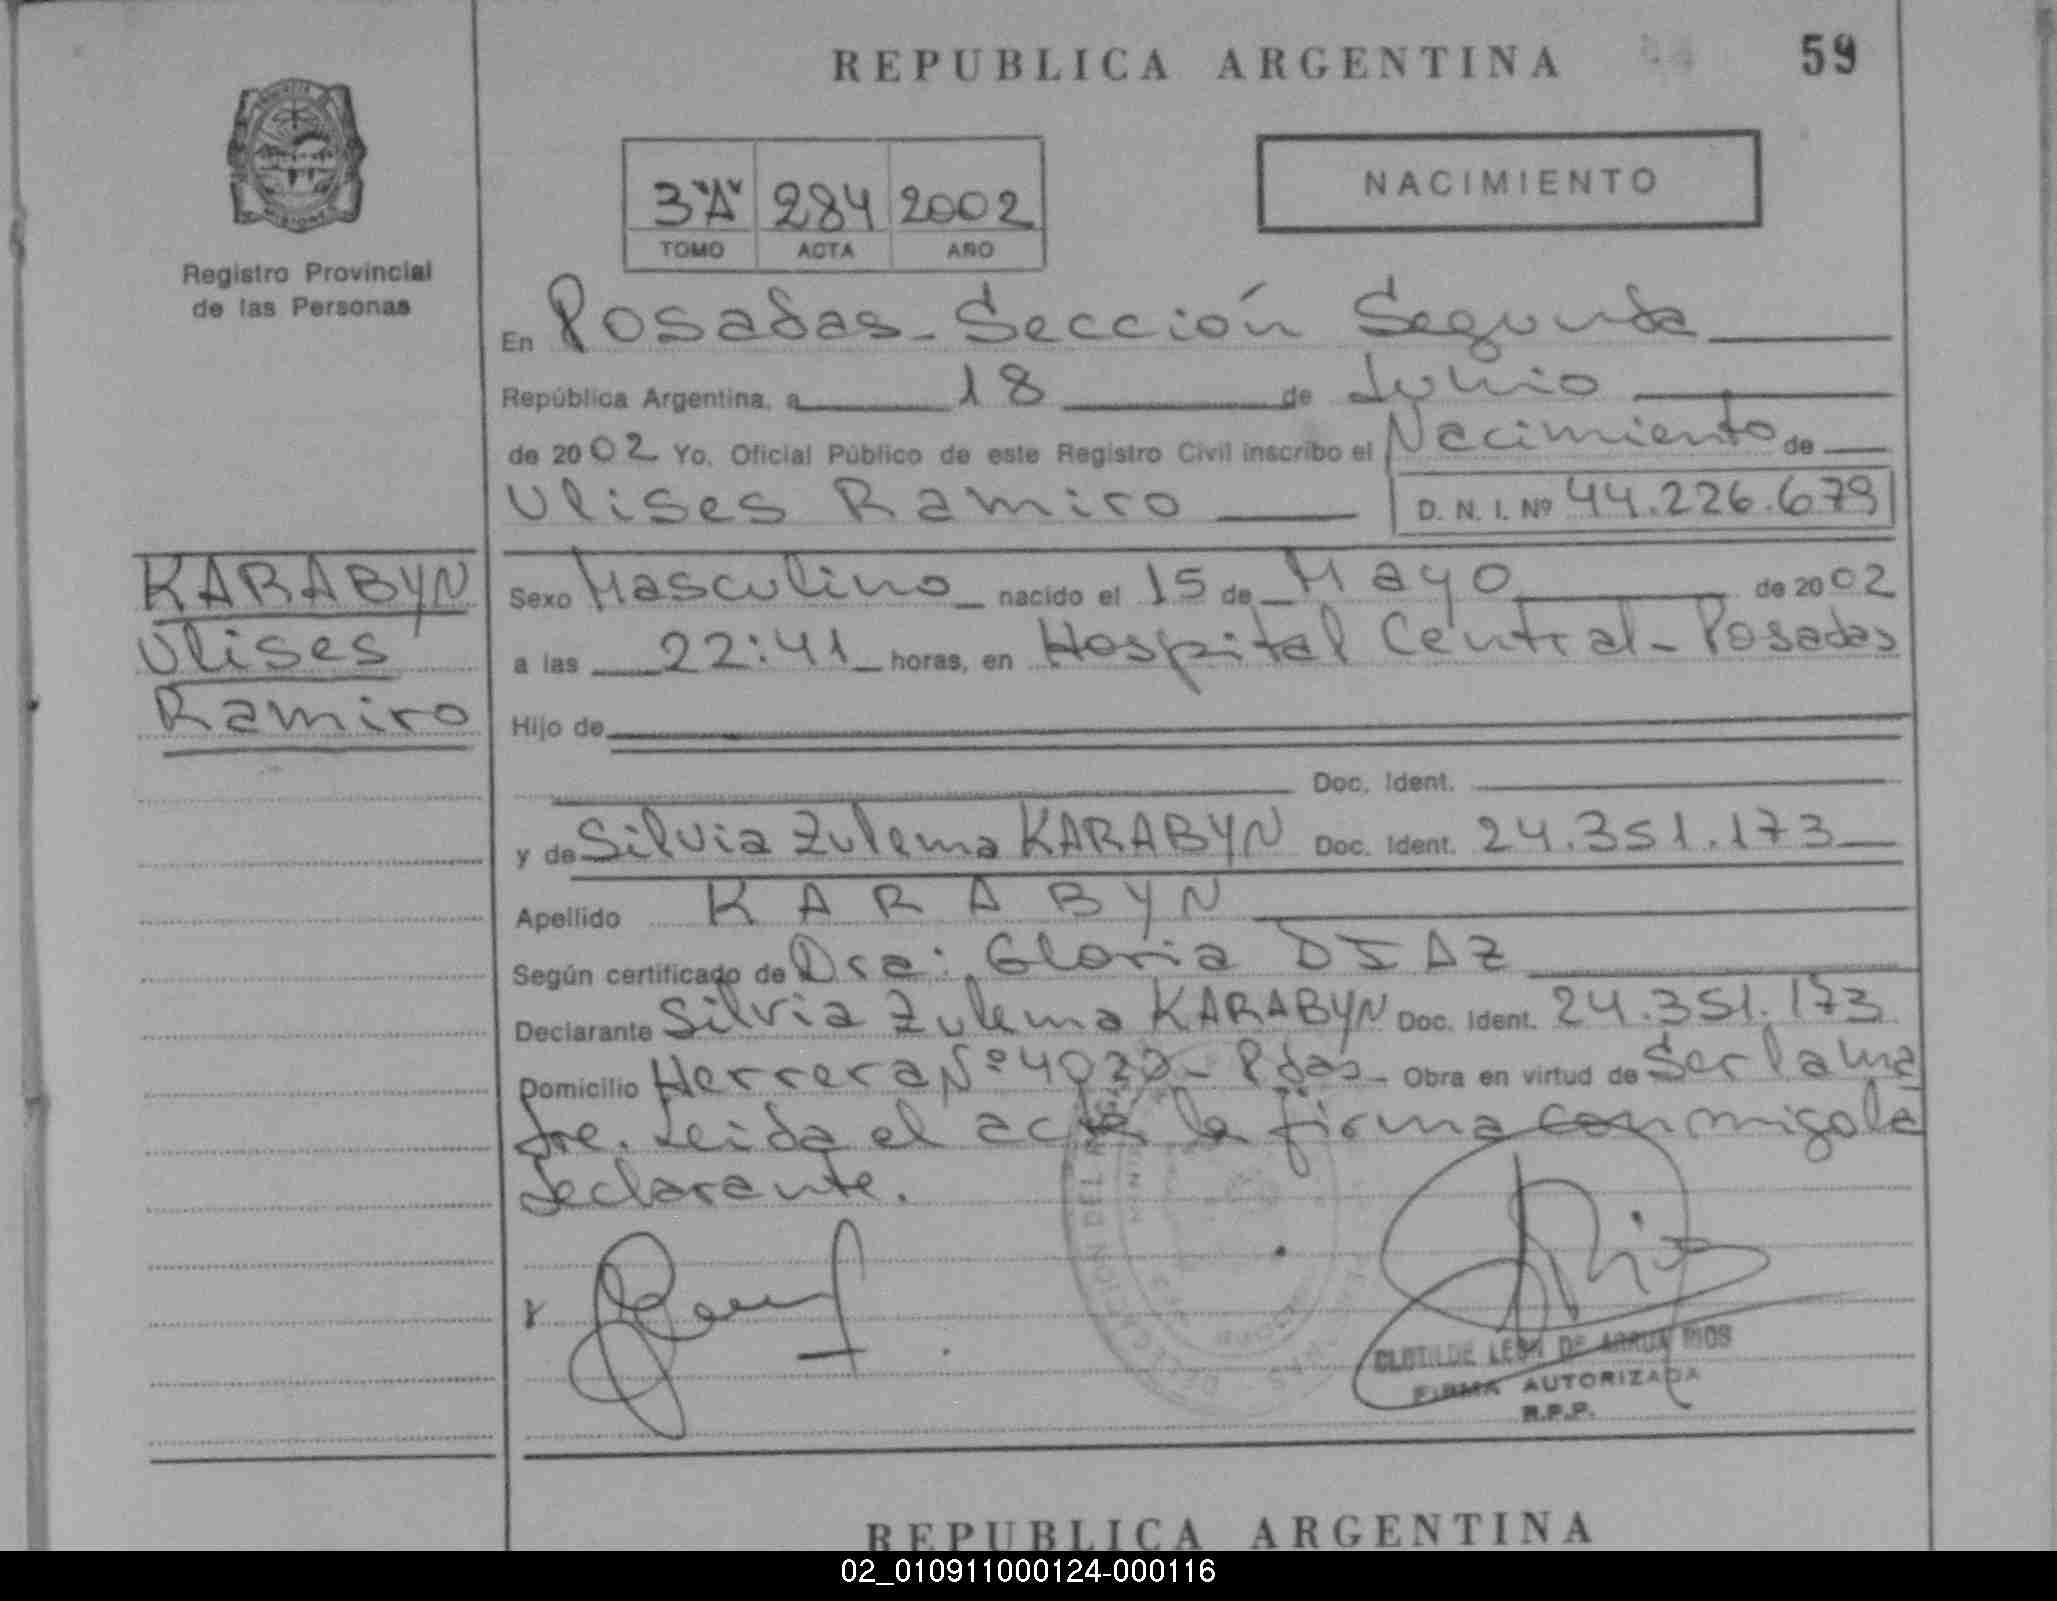 REPUBLICA ARGENTINA
59
Registro Provincial
de las Personas
3 "A" 284 2002
TOMO ACTA AÑO
NACIMIENTO
En Posadas - Sección Segunda
República Argentina, a 18 de Junio
de 2002 Yo, Oficial Público de este Registro Civil inscribo el Nacimiento de
Ulises Ramiro
D. N. I. Nº 44.226.679
KARABYN
Ulises
Ramiro
Sexo Masculino nacido el 15 de Mayo de 2002
a las 22:41 horas, en Hospital Central - Posadas
Hijo de
Doc. Ident.
y de Silvia Zulema KARABYN Doc. Ident. 24.351.173
Apellido KARABYN
Según certificado de Dra: Gloria DIAZ
Declarante Silvia Zulema KARABYN Doc. Ident. 24.351.173
Domicilio Herrera Nº - Pdas - Obra en virtud de Ser la ma
dre. Leida el acta la firma conmigo la
declarante.
CLOTILDE LEON DE RIOS
FIRMA AUTORIZADA
R.P.P.
REPUBLICA ARGENTINA
02_010911000124-000116